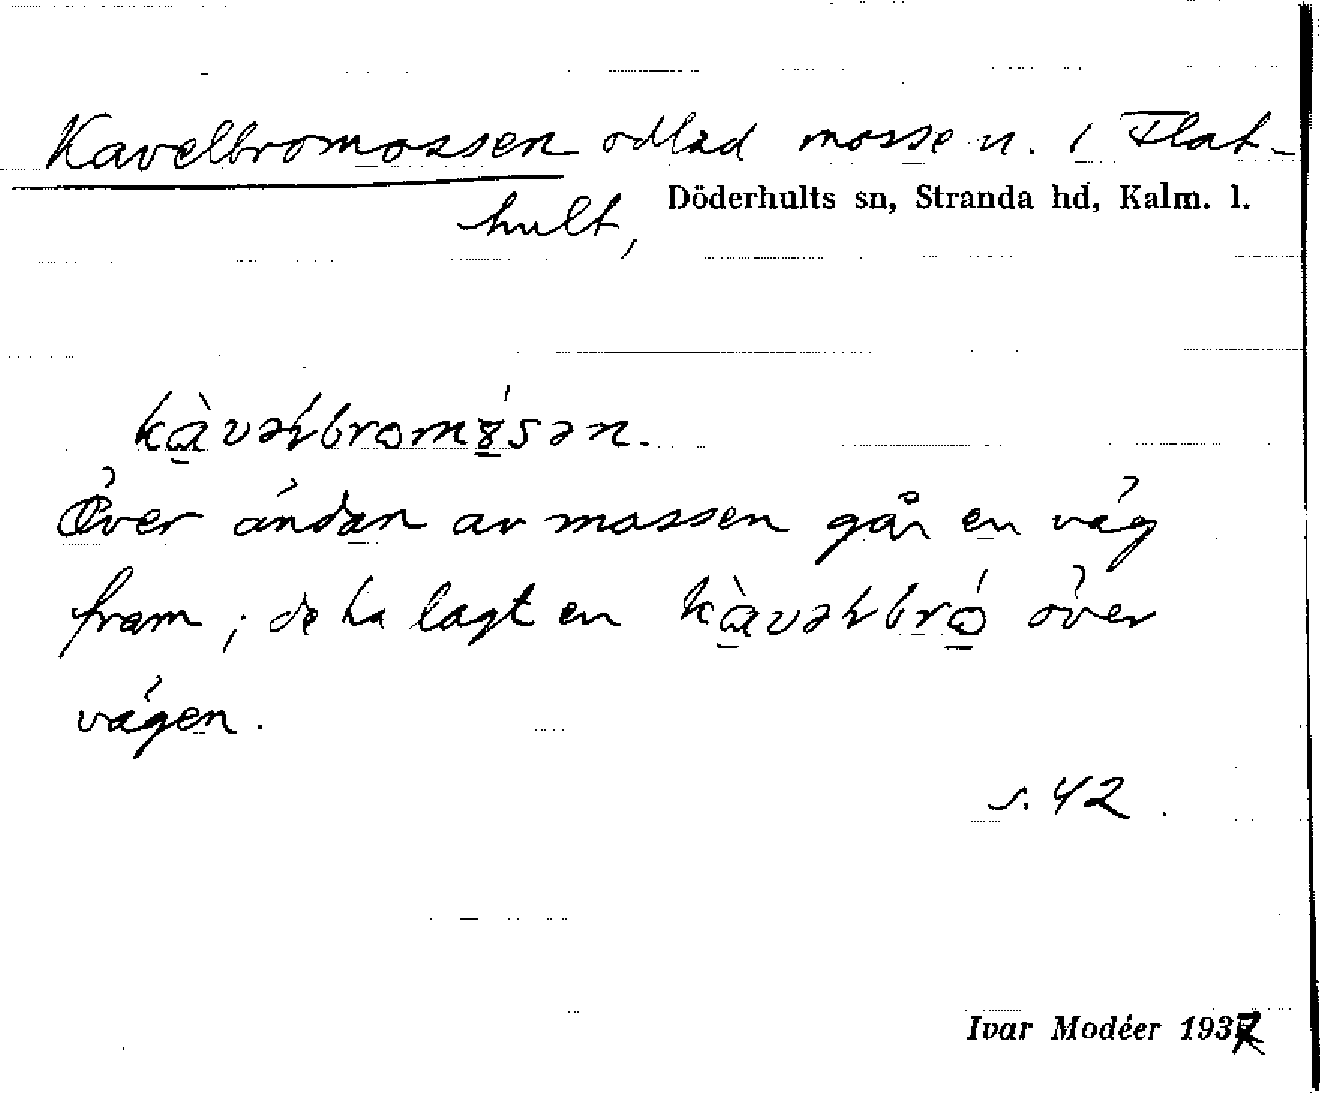 Kavelbromossen odlad mosse n. i Flat-
hult, Döderhults sn, Stranda hd, Kalm. l.
kàvəɫbromɤ́sən.
Över ändan av mossen går en väg
fram; de ha lagt en kàvəɫbró över
vägen.
s. 42.
Ivar Modéer 1937